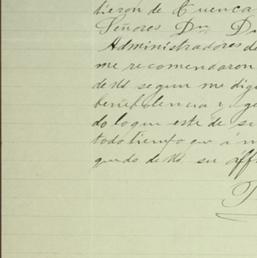 dieron de Cuenca
Señores Dn. D
Administradores de
me recomendaron
de Vd segun me dig
benebolencia y go
do lo que este de su
todo tiempo que a m
quedo de Vd su aff